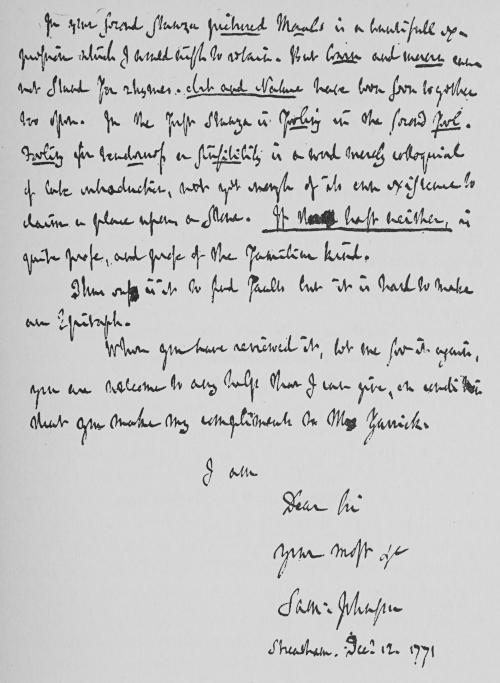 In your second Stanza pictured Morals is a beautifull ex-
pression which I would wish to retain. But learn and mourn can
not stand for rhymes. Art and Nature have been seen together
too often. In the first Stanza is feeling in the second feel.
Feeling for tenderness or sensibility is a word merely colloquial
of late introduction, not yet enough of its own existence to
claim a place upon a Stone. If thou hast neither, is
quite prose, and prose of the familiar kind.
Thus easy is it to find faults but it is hard to make
an Epitaph.
When you have reviewed it, let me see it again,
you are welcome to any help that I can give, on condition
that you make my compliments to Mrs Garrick.
I am
Dear Sir
your most &c
Sam: Johnson
Streatham. Decr 12. 1771